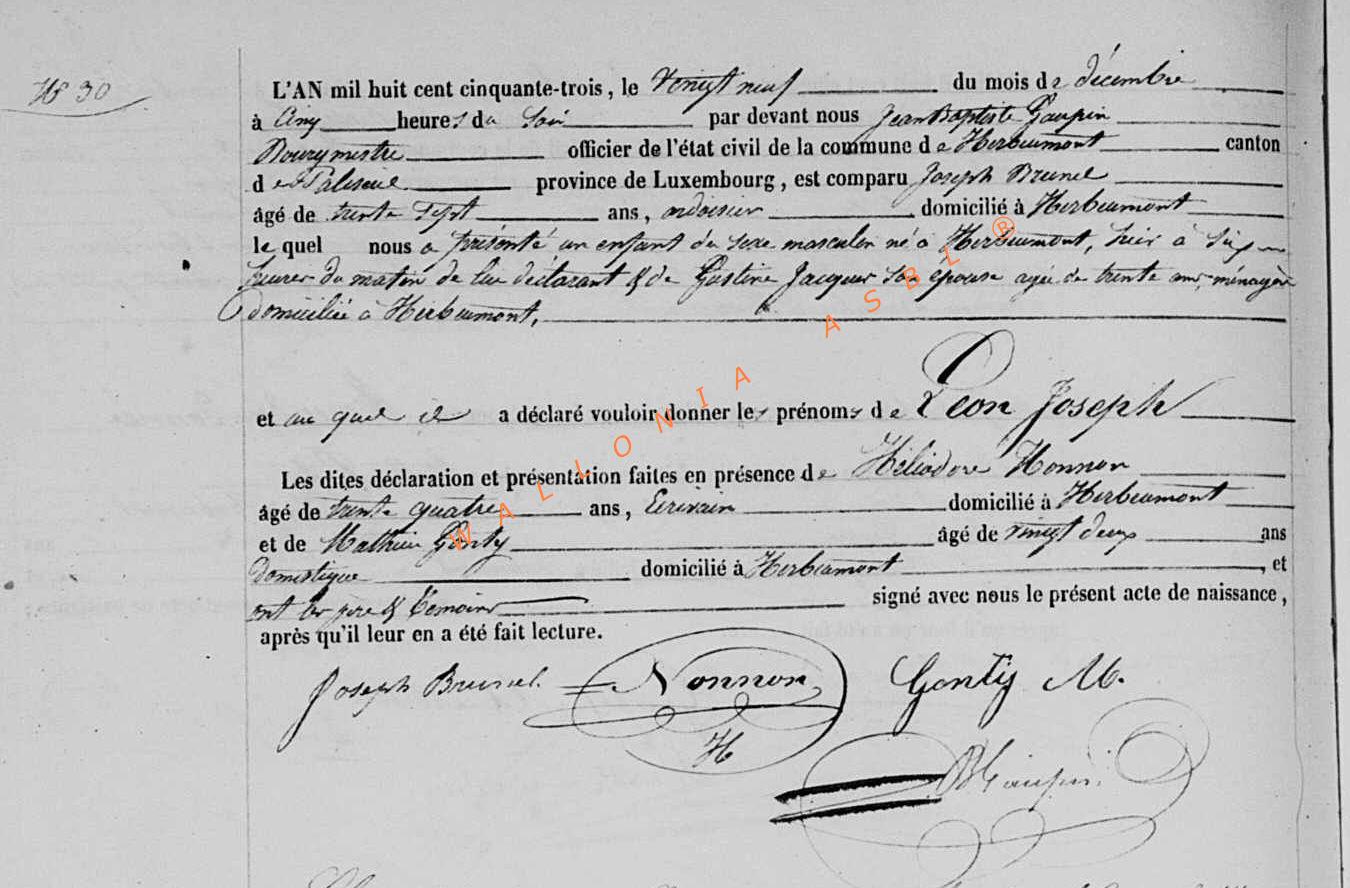 N° 30
L'AN mil huit cent cinquante-trois, le Vingt neuf du mois de décembre
à Cinq heures du Soir par devant nous Jean Baptiste Gaupin
Bourgmestre officier de l'état civil de la commune de Herbeumont canton
de Paliseul province de Luxembourg, est comparu Joseph Brunel
âgé de trente sept ans, ardoisier domicilié à Herbeumont
le quel nous a présenté un enfant du sexe masculin né à Herbeumont, hier à Six
heures du matin de lui déclarant & de Jacques son épouse agée de trente ans, ménagère
domiciliée à Herbeumont,
et au quel il a déclaré vouloir donner les prénoms de Léon Joseph
Les dites déclaration et présentation faites en présence de Héliodore Nonnon
âgé de trente quatre ans, Ecrivain domicilié à Herbeumont
et de Mathieu Gonty âgé de vingt deux ans
domestique domicilié à Herbeumont, et
ont les père & témoins signé avec nous le présent acte de naissance,
après qu'il leur en a été fait lecture.
Joseph Brunel Nonnon Gonty M.
H
WALLONIA ASBL ®